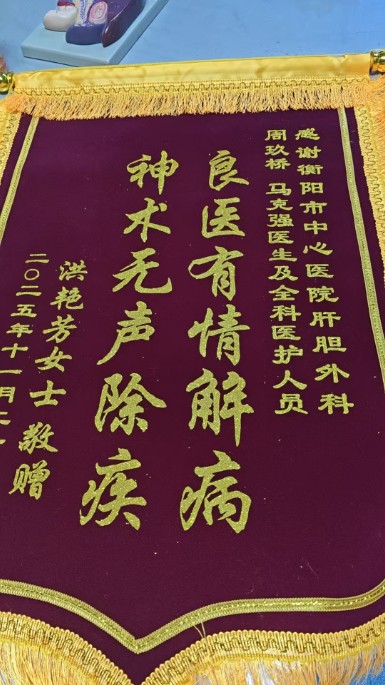 感谢衡阳市中心医院肝胆外科
周玖桥 马克强医生及全科医护人员
良医有情解病
神术无声除疾
洪艳芳女士 敬赠
二〇二五年十一月